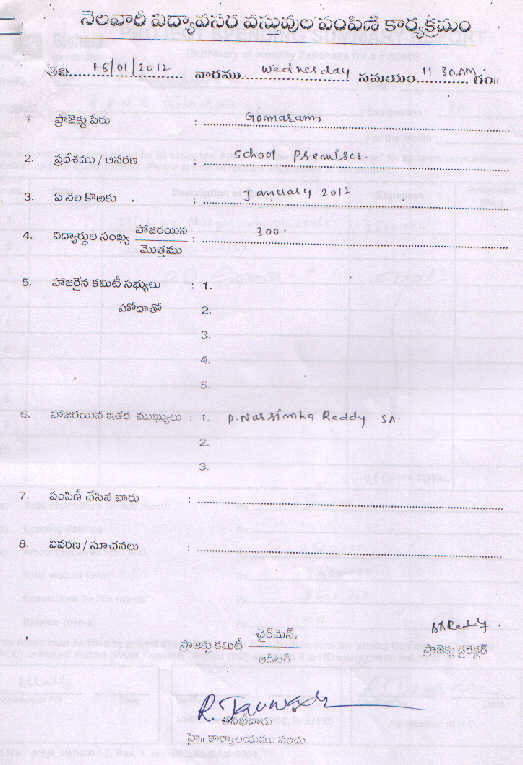 నెలవారీ విద్యావసర వస్తువుల పంపిణీ కార్యక్రమం
తేది. 18/01/2012 వారము Wednesday సమయం 11 30AM గం॥
1 ప్రాజెక్టు పేరు : Gomaram
2. ప్రదేశము / ఆవరణ : School Premises.
3. ఏ నెల కొరకు : January 2012
4. విద్యార్థుల సంఖ్య హాజరయిన : 300.
మొత్తము
5. హాజరైన కమిటీ సభ్యులు : 1.
హోదాతో 2.
3.
4.
5.
6. హాజరయిన ఇతర ముఖ్యులు : 1. P. Narsimha Reddy SA
2.
3.
7. పంపిణీ చేసిన వారు :
8. వివరణ / సూచనలు :
ప్రాజెక్టు కమిటీ ఛైర్మెన్,
ప్రాజెక్టు డైరెక్టర్